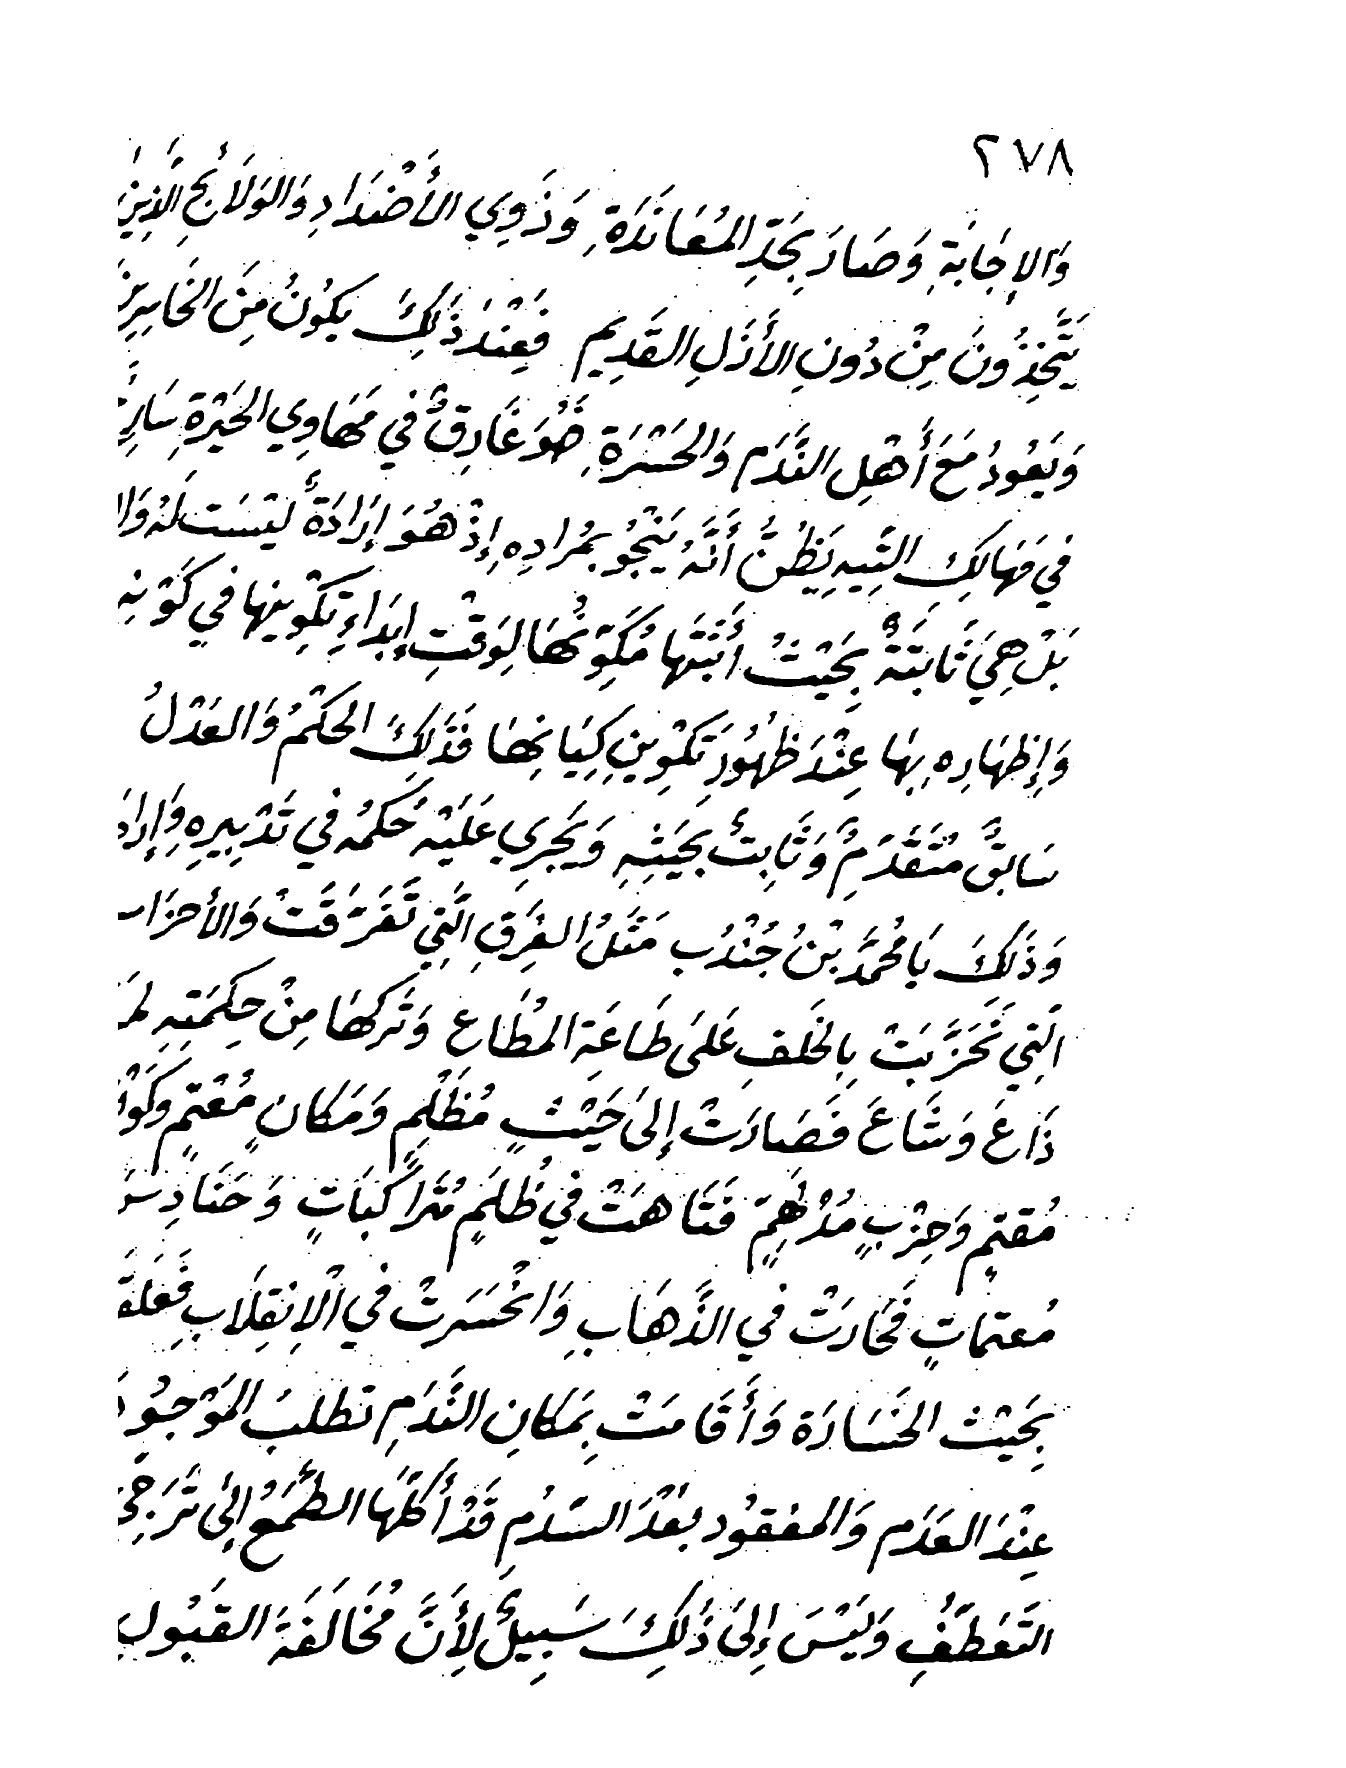 ٢٧٨
وَالإِجَابَةِ وَصَارَ بِحَدِّ المُعَانَدَةِ وَذَوِي الأَضْدَادِ وَالوَلَائِجِ الَّذِينَ
يَتَّخِذُونَ مِنْ دُونِ الأَزَلِ القَدِيمِ فَعِنْدَ ذَلِكَ يَكُونُ مِنَ الخَاسِرِينَ
وَيَعُودُ مَعَ أَهْلِ النَّدَمِ وَالحَسْرَةِ فَهُوَ غَارِقٌ فِي مَهَاوِي الحَيْرَةِ
فِي مَهَالِكِ التِّيهِ يَظُنُّ أَنَّهُ يَنْجُو بِمُرَادِهِ إِذْ هُوَ إِرَادَةٌ لَيْسَت لَهُ
بَلْ هِيَ ثَابِتَةٌ بِحَيْثُ أَثْبَتَهَا مُكَوِّنُهَا لِوَقْتِ إِبْدَاءِ تَكْوِينِهَا فِي كَوْنِهِ
وَإِظهَارِهِ بِهَا عِنْدَ ظُهُورِ تَكْوِينِ كِيَانِهَا فَذَلِكَ الحُكْمُ وَالعَدْلُ
سَابِقٌ مُتَقَدِّمٌ وَثَابِتٌ بِحَيْثِهِ وَيَجْرِي عَلَيْهِ حُكمُهُ فِي تَدْبِيرِهِ
وَذَلِكَ يَا مُحَمَّدَ بْنُ جُنْدُبِ مَثَلُ الفِرَقِ الَّتِي تَفَرَّقَتْ وَالأحزَاب
الَّتِي تَحَزَّبَتْ بِالخَلفِ عَلَى طَاعَةِ المُطَاعِ وَتَركِهَا مِنْ حِكمَتِهِ لمَا
ذَاعَ وَشَاعَ فَصَارَتْ إِلَى حَيْثٍ مُظلِمٍ وَمَكَانٍ مُعْتِمٍ وَكَوْنٍ
مُقتِمٍ وَحِزْبٍ مُدْلَهِمٍّ فَتَاهَتْ فِي ظُلَمٍ مُتَرَاكِبَاتٍ وَحَنَادِسَ
مُعتِمَاتٍ فَحَارَتْ فِي الذَّهَابِ وَانْحَسَرتْ فِي الْاِنقِلَابِ
بِحَيْثِ الخَسَارَة وَأَقَامَتْ بِمَكَانِ النَّدَمِ تَطلُبُ المَوْجُودَ
عِنْدَ العَدَمِ وَالمَفقُودِ بَعْدَ السَّدَمِ قَدْ أَكَلَّهَا الطَّمَعُ إِلَى تَرَجِّي
التَّعَطُّفِ وَلَيْسَ إِلَى ذَلِكَ سَبِيلٌ لِأَنَّ مُخَالَفَةَ القَبُولِ